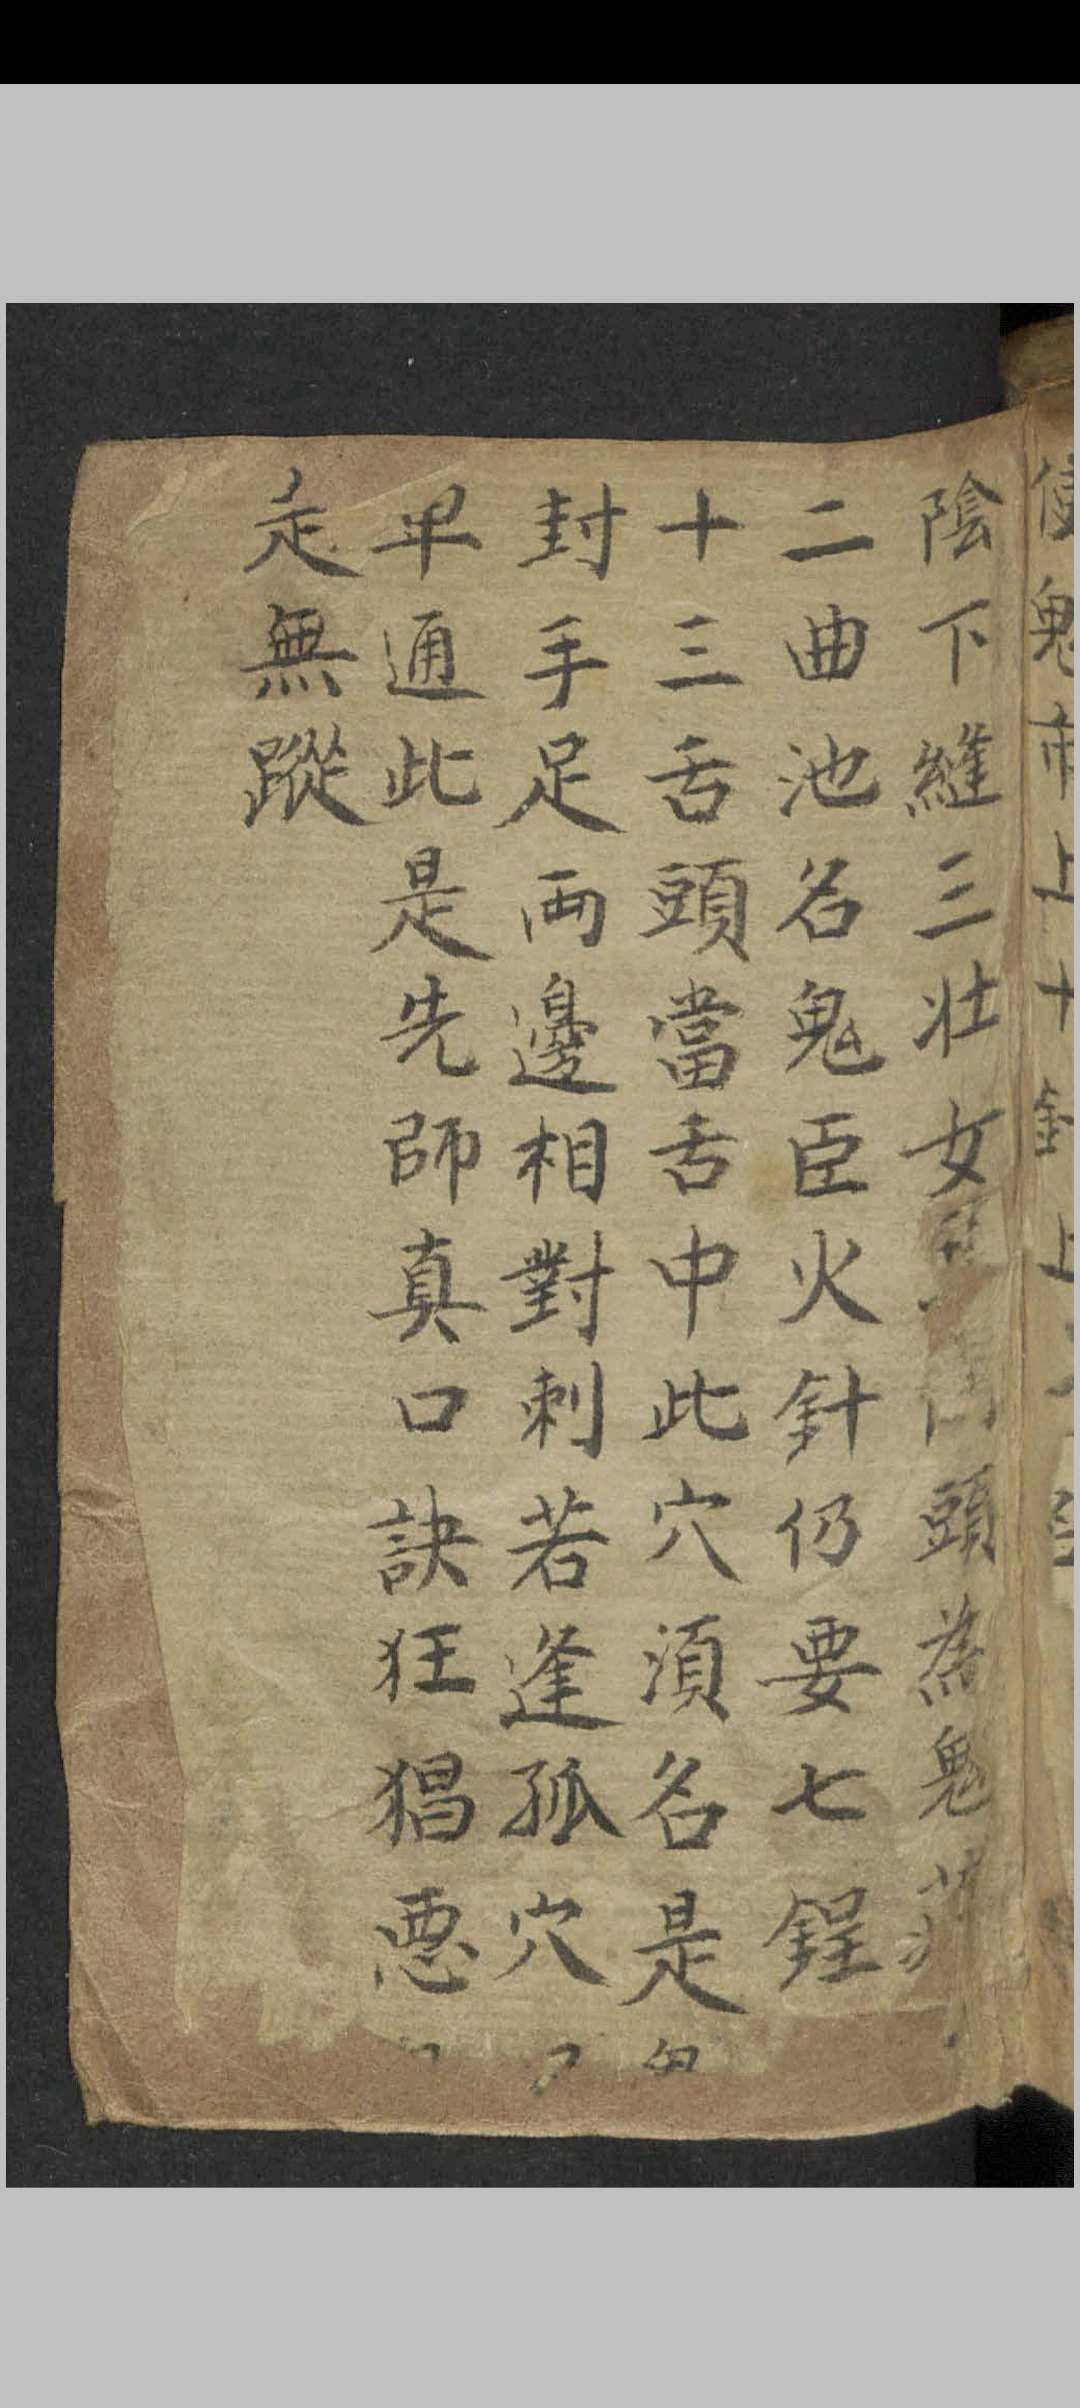 使鬼市上十針上
陰下縫三壯女頭為鬼莊
二曲池名鬼臣火針仍要七鋥
十三舌頭當舌中此穴須名是
封手足両邊相對刺若逢孤穴
早通此是先師真口訣狂猖悪
走無蹤